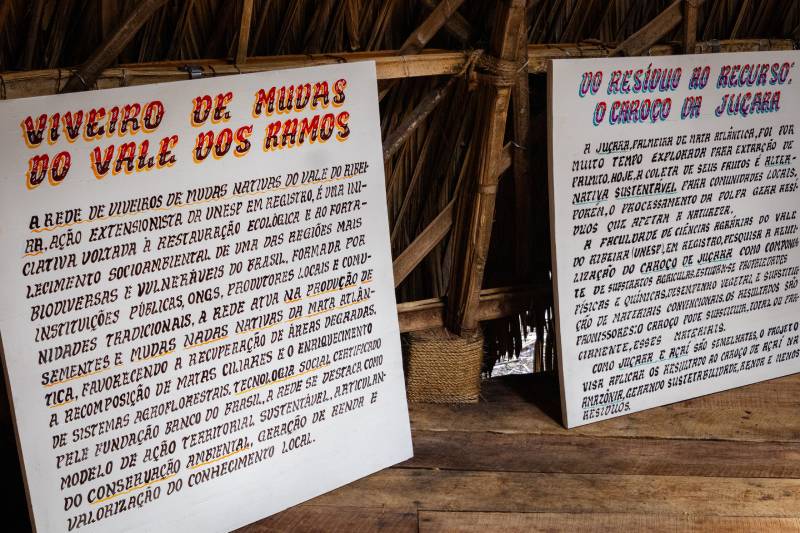 VIVEIRO DE MUDAS
DO VALE DOS RAMOS
A REDE DE VIVEIROS DE MUDAS NATIVAS DO VALE DO RIBEI-
RA, AÇÃO EXTENSIONISTA DA UNESP EM REGISTRO, É UMA INI-
CIATIVA VOLTADA À RESTAURAÇÃO ECOLÓGICA E AO FORTA-
LECIMENTO SOCIOAMBIENTAL DE UMA DAS REGIÕES MAIS
BIODIVERSAS E VULNERÁVEIS DO BRASIL, FORMADA POR
INSTITUIÇÕES PÚBLICAS, ONGS, PRODUTORES LOCAIS E COMU-
NIDADES TRADICIONAIS, A REDE ATUA NA PRODUÇÃO DE
SEMENTES E MUDAS NADAS NATIVAS DA MATA ATLÂN-
TICA, FAVORECENDO A RECUPERAÇÃO DE ÁREAS DEGRADADAS,
A RECOMPOSIÇÃO DE MATAS CILIARES E O ENRIQUECIMENTO
DE SISTEMAS AGROFLORESTAIS, TECNOLOGIA SOCIAL CERTIFICADO
PELE FUNDAÇÃO BANCO DO BRASIL, A REDE SE DESTACA COMO
MODELO DE AÇÃO TERRITORIAL SUSTENTÁVEL, ARTICULAN-
DO CONSERVAÇÃO AMBIENTAL, GERAÇÃO DE RENDA E
VALORIZAÇÃO DO CONHECIMENTO LOCAL.
DO RESÍDUO AO RECURSO:
O CAROÇO DA JUÇARA
A JUÇARA, PALMEIRA DE MATA ATLÂNTICA, FOI POR
MUITO TEMPO EXPLORADA PARA EXTRAÇÃO DE
PALMITO, HOJE, A COLETA DE SEUS FRUTOS É ALTER-
NATIVA SUSTENTÁVEL PARA COMUNIDADES LOCAIS,
PORÉM, O PROCESSAMENTO DA POLPA GERA RESÍ-
DUOS QUE AFETAM A NATUREZA.
A FACULDADE DE CIÊNCIAS AGRÁRIAS DO VALE
DO RIBEIRA (UNESP), EM REGISTRO, PESQUISA A REUTI-
LIZAÇÃO DO CAROÇO DE JUÇARA COMO COMPONEN
TE DE SUBSTRATOS AGRÍCOLAS, ESTUDAM-SE PROPRIEDADES
FÍSICAS E QUÍMICAS, DESEMPENHO VEGETAL, E SUBSTITUI
ÇÃO DE MATERIAIS CONVENCIONAIS. OS RESULTADOS SÃO
PROMISSORES: O CAROÇO PODE SUBSTITUIR, TOTAL OU PAR-
CIALMENTE, ESSES MATERIAIS.
COMO JUÇARA E AÇAÍ SÃO SEMELHANTES, O PROJETO
VISA APLICAR OS RESULTADO AO CAROÇO DE AÇAÍ NA
AMAZÔNIA, GERANDO SUSTETABILIDADE, RENDA E MENOS
RESÍDUOS.